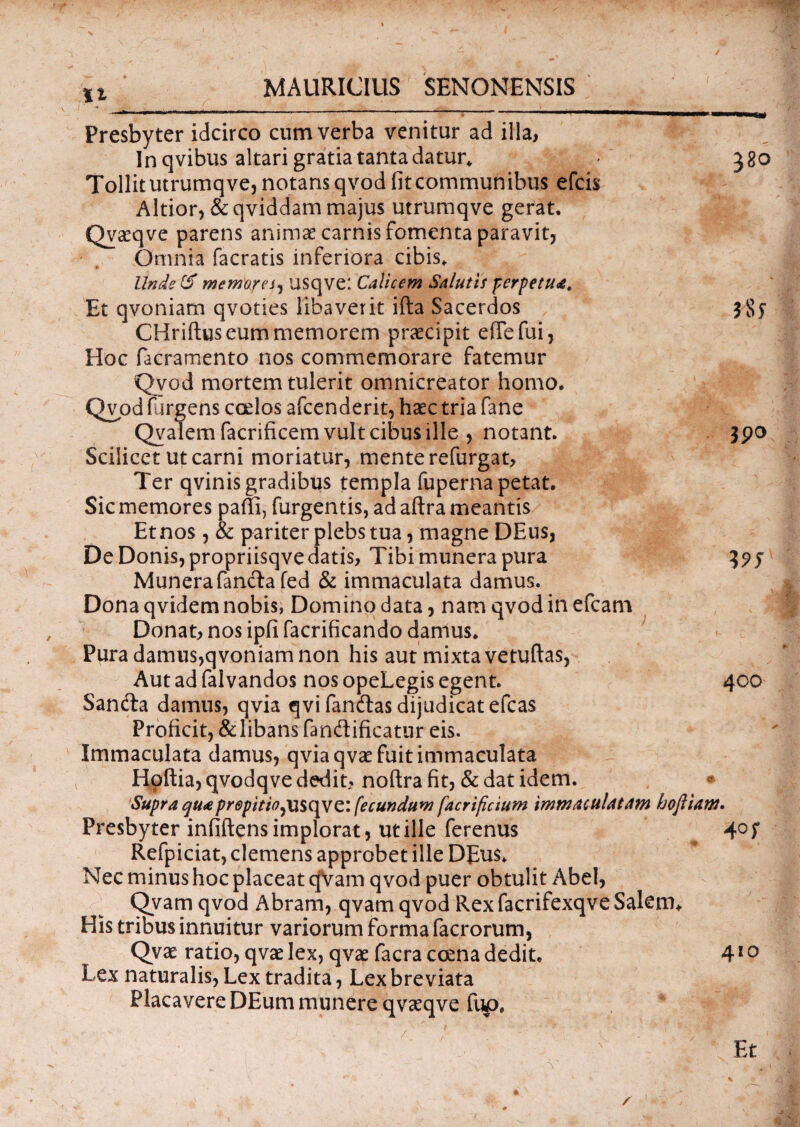 12 MAURICIUS SENONENSIS
Presbyter idcirco cum verba venitur ad illa,
In qvibus altari gratia tanta datur. 380
Tollit utrumqve, notans qvod ſit communibus eſcis
Altior, & qviddam majus utrumqve gerat.
Qvæqve parens animæ carnis fomenta paravit,
Omnia ſacratis inferiora cibis.
Unde & memores, usqve: Calicem Salutis perpetuæ.
Et qvoniam qvoties libaverit iſta Sacerdos 385
CHriſtus eum memorem præcipit eſſe ſui,
Hoc ſacramento nos commemorare fatemur
Qvod mortem tulerit omnicreator homo.
Qvod ſurgens cœlos aſcenderit, hæc tria ſane
Qvalem ſacrificem vult cibus ille, notant. 390
Scilicet ut carni moriatur, mente reſurgat,
Ter qvinis gradibus templa ſuperna petat.
Sic memores paſſi, ſurgentis, ad aſtra meantis
Et nos, & pariter plebs tua, magne DEus,
De Donis, propriisqve datis, Tibi munera pura 395
Munera ſancta ſed & immaculata damus.
Dona qvidem nobis, Domino data, nam qvod in eſcam
Donat, nos ipſi ſacrificando damus.
Pura damus, qvoniam non his aut mixta vetuſtas,
Aut ad ſalvandos nos ope Legis egent. 400
Sancta damus, qvia qvi ſanctas dijudicat eſcas
Proficit, & libans ſanctificatur eis.
Immaculata damus, qvia qvæ fuit immaculata
Hoſtia, qvodqve dedit, noſtra fit, & dat idem.
Supra quæ propitio, usqve: ſecundum ſacrificium immaculatam hoſtiam.
Presbyter inſiſtens implorat, ut ille ſerenus 405
Reſpiciat, clemens approbet ille DEus.
Nec minus hoc placeat qvam qvod puer obtulit Abel,
Qvam qvod Abram, qvam qvod Rex ſacrifexqve Salem.
His tribus innuitur variorum forma ſacrorum,
Qvæ ratio, qvæ lex, qvæ ſacra cœna dedit. 410
Lex naturalis, Lex tradita, Lex breviata
Placavere DEum munere qvæqve ſuo.
Et